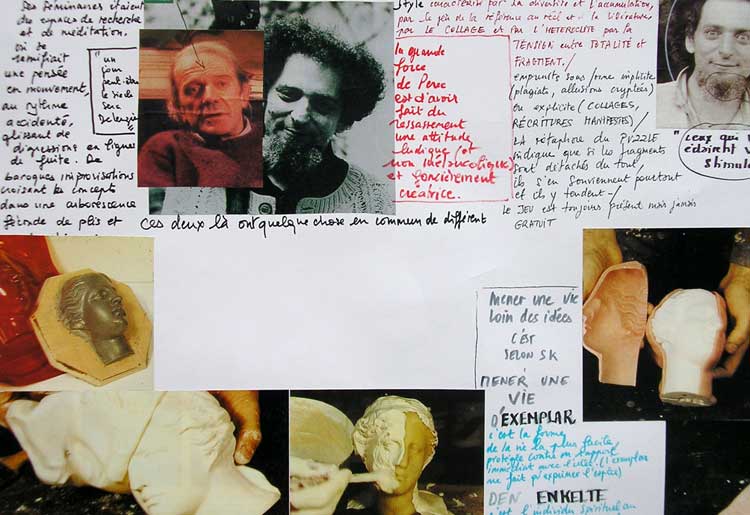 Ses séminaires étaient
des espaces de recherche
et de méditation,
où se
ramifiait
une pensée
en mouvement,
au rythme
accidenté,
glissant de
digressions en lignes
de fuite. De
baroques improvisations
croisant les concepts
dans une arborescence
féconde de plis et
"un
jour
peut-être
le siècle
sera
Deleuzien
Style caractérisé par la divertité et l'accumulation,
par le jeu de la référence au réel et à la littérature
par LE COLLAGE et PAR L'HETEROCLITE par la
TENSION entre TOTALITÉ et
FRAGMENT./
emprunts sous forme implicite
(plagiats, allusions cryptées)
ou explicite (COLLAGES,
RÉCRITURES MANIFESTES)/
LA métaphore du PUZZLE
indique que si les fragments
sont détachés du tout,
ils s'en souviennent pourtant
et ils y tendent-/
LE JEU est toujours présent mais jamais
GRATUIT
la grande
force
de Perec
est d'avoir
fait du
ressassement
une attitude
ludique (et
non mélancolique)
et foncièrement
créatrice.
"ceux qui
stimul
ces deux là ont quelque chose en commun de différent
mener une vie
loin des idées
c'est
SELON SK
MENER UNE
VIE
D'EXEMPLAR
c'est la forme
de la vie la plus facile,
protégée contre un rapport
immédiat avec l'idée. (l'exemplar
ne fait qu'exprimer l'espèce)
DEN ENKELTE
c'est l'individu spirituel au